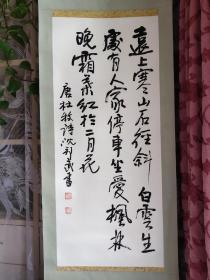 遠上寒山石徑斜白雲生
處有人家停車坐愛楓林
晚霜葉紅於二月花
唐杜牧詩沈